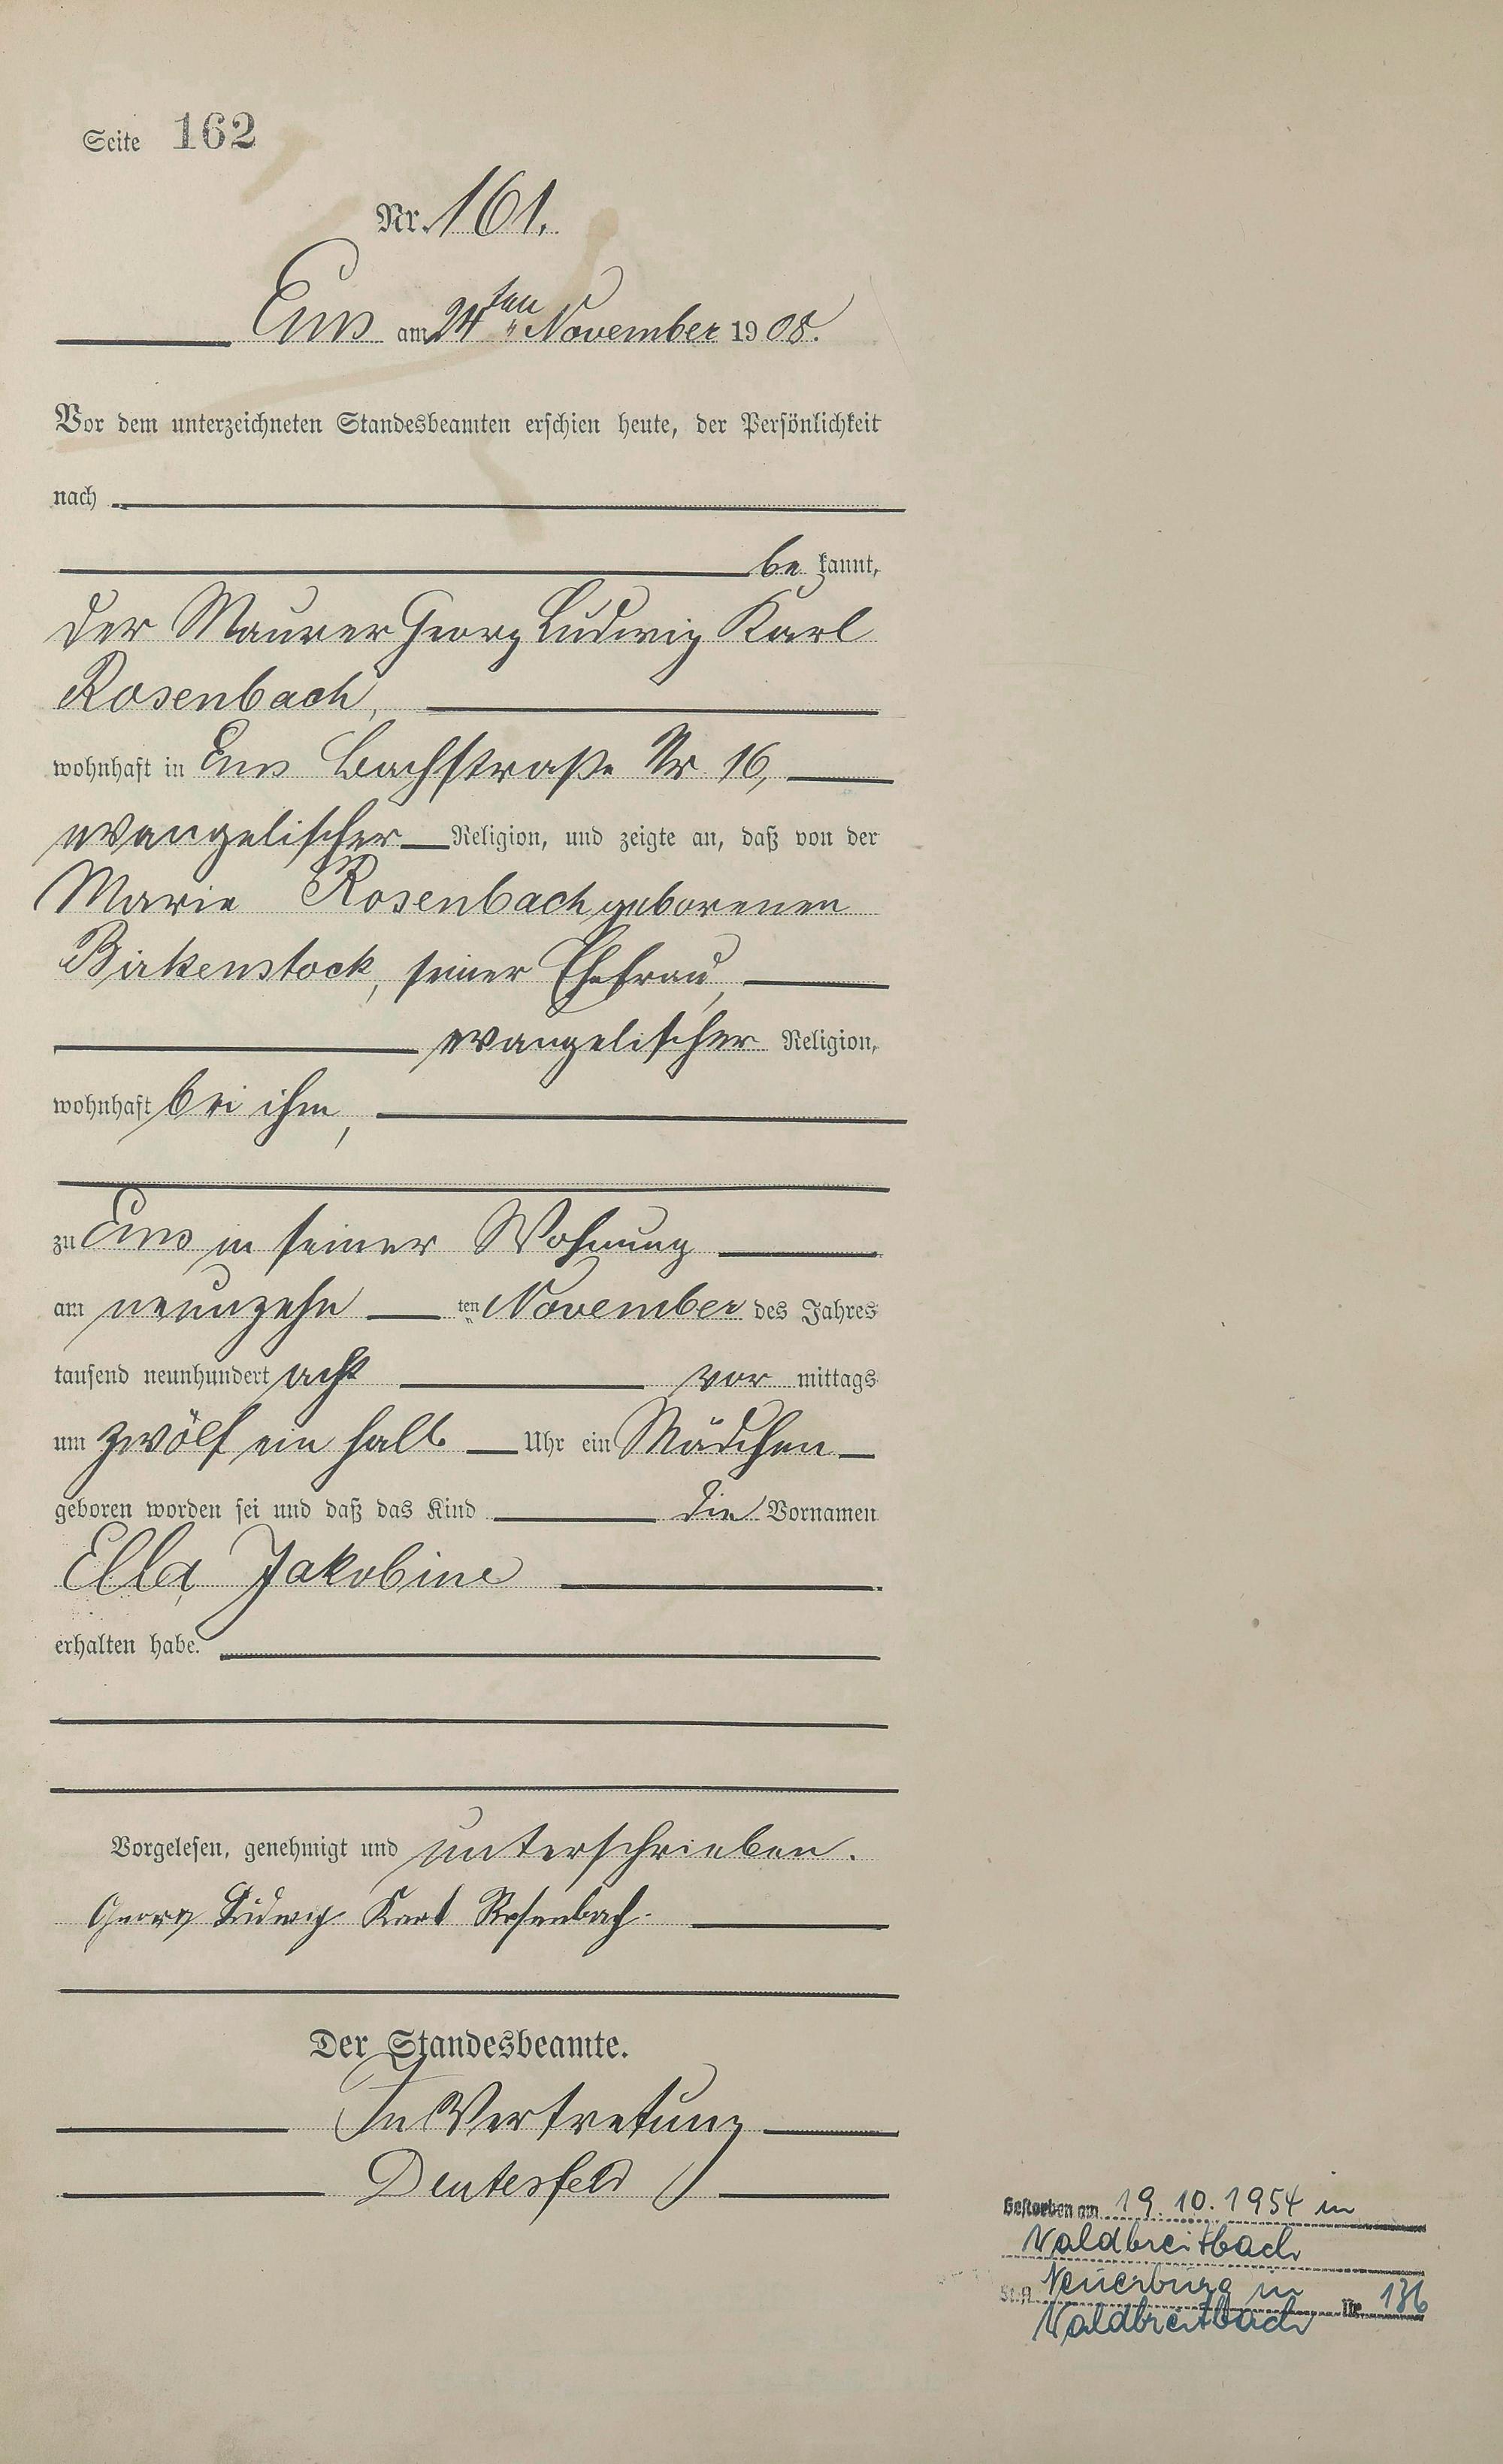 Seite 162
Nr. 161.
Ems am 24ten November 1908.
Vor dem unterzeichneten Standesbeamten erschien heute, der Persönlichkeit
nach
be kannt,
der Maurer Georg Ludwig Karl
Rosenbach,
wohnhaft in Ems Bachstraße Nr. 16,
evangelischer Religion, und zeigte an, daß von der
Marie Rosenbach geborenen
Birkenstock, seiner Ehefrau,
evangelischer Religion,
wohnhaft bei ihm,
zu Ems in seiner Wohnung
am neunzehn ten November des Jahres
tausend neunhundert acht vor mittags
um zwölf ein halb Uhr ein Mädchen
geboren worden sei und daß das Kind die Vornamen
Ella Jakobine
erhalten habe.
Vorgelesen, genehmigt und unterschrieben.
Georg Ludwig Karl Rosenbach.
Der Standesbeamte.
In Vertretung
Deutesfeld
Gestorben am 19.10.1954 in
Waldbreitbach
St.A. Neuerburg in Nr. 136
Waldbreitbach